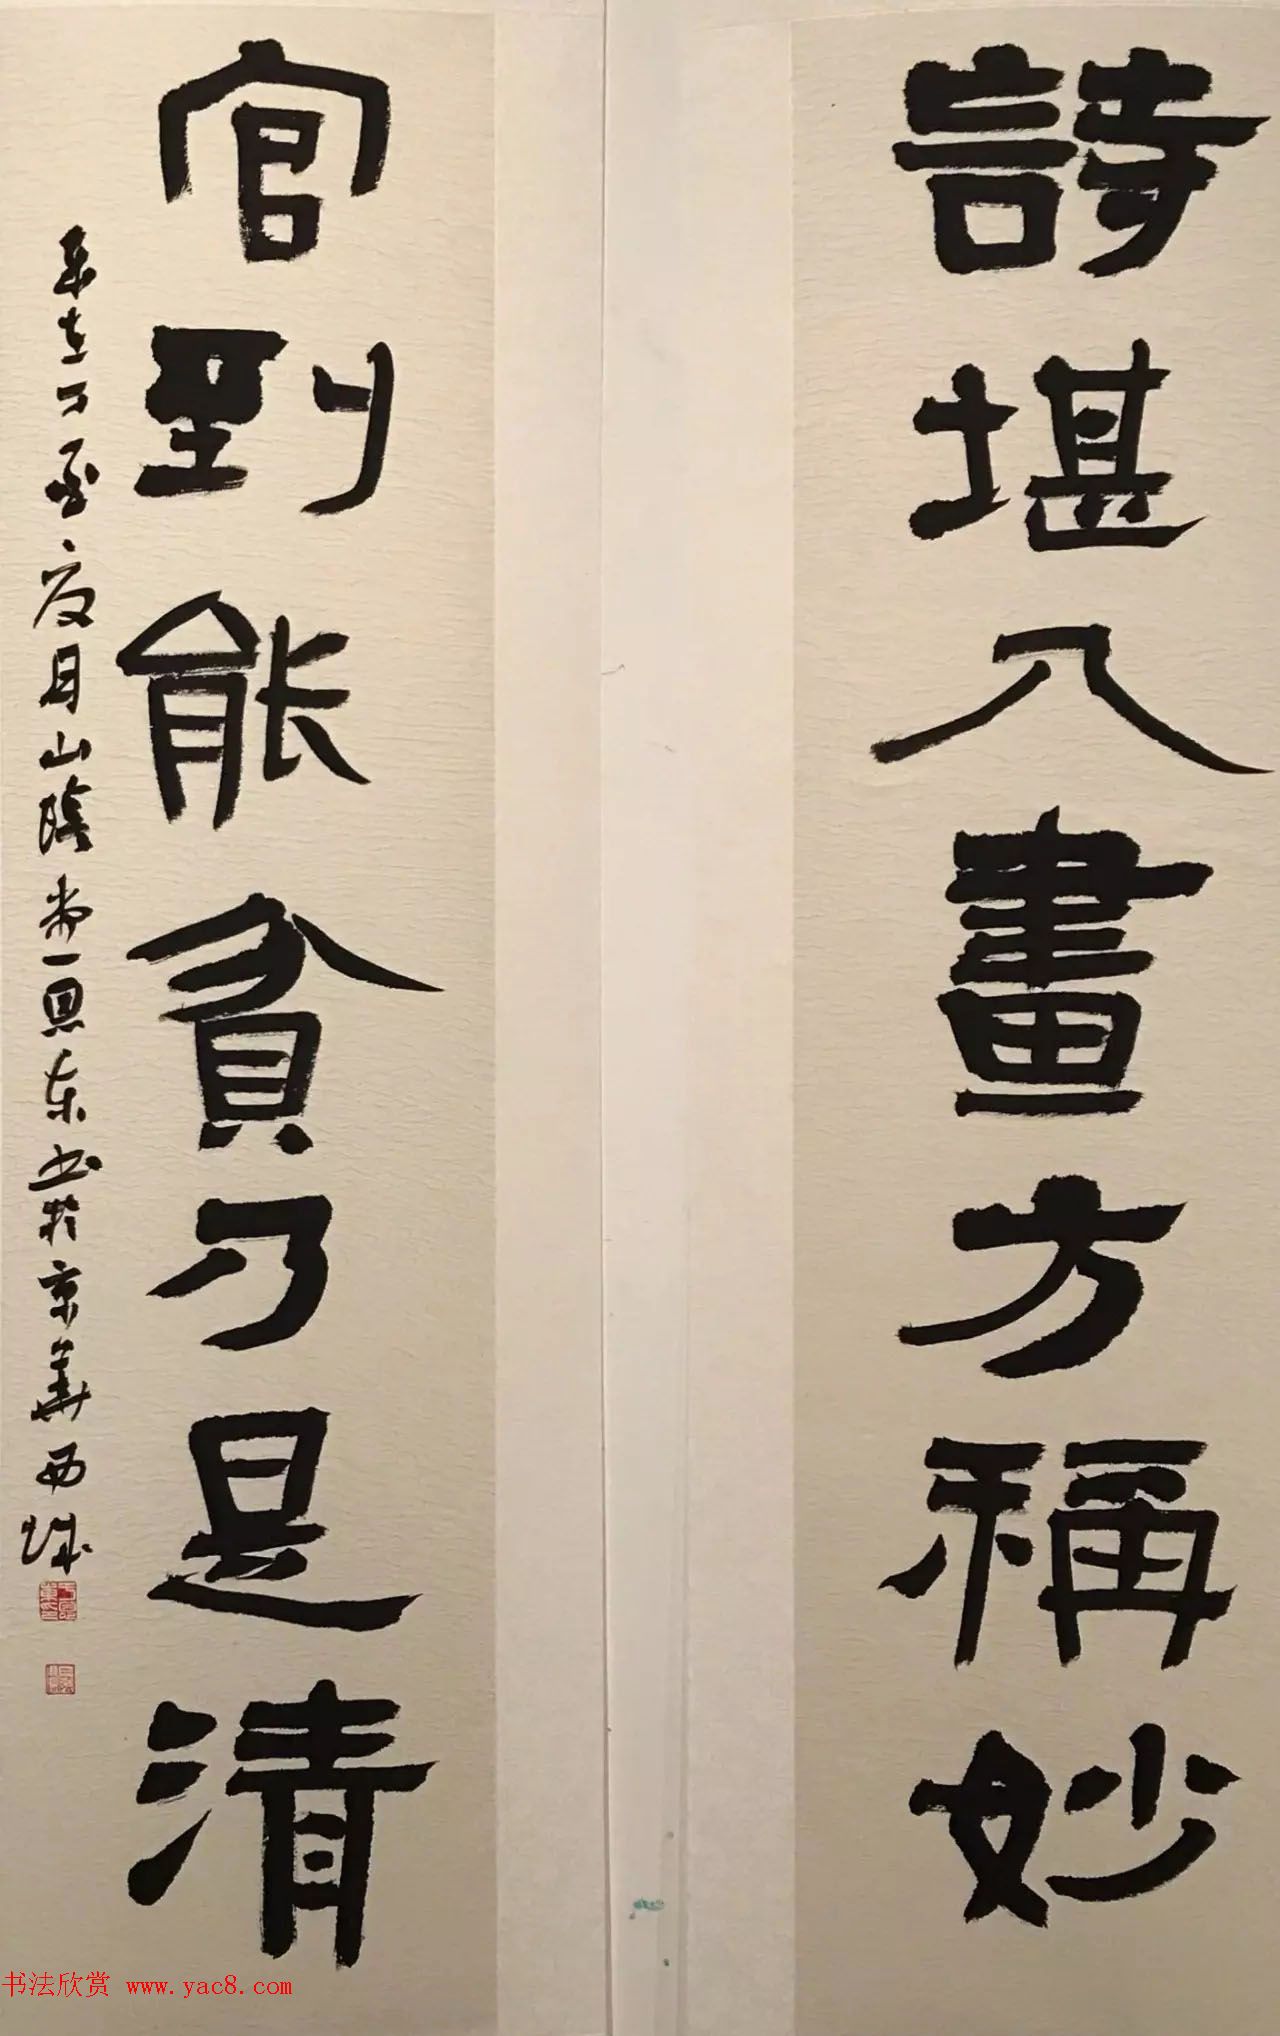 詩堪入畫方稱妙
官到能貧乃是清
月山陰尚一恩东书於京華西城
书法欣赏 www.yac8.com